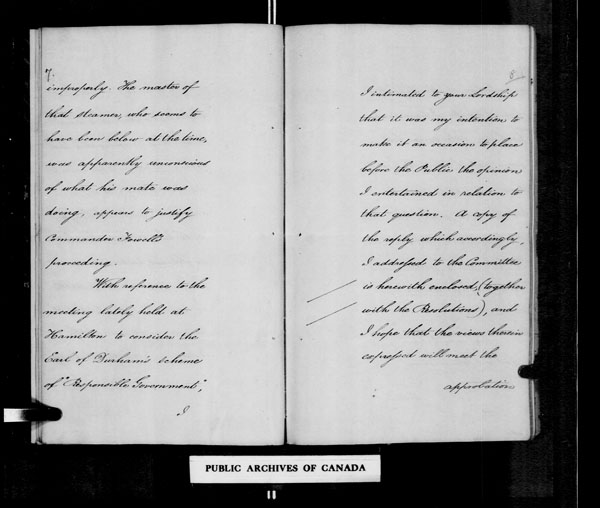 7.
improperly. The master of
that steamer, who seems to
have been below at the time,
was apparently unconscious
of what his mate was
doing, appears to justify
Commander Fowell's
proceeding.
With reference to the
meeting lately held at
Hamilton to consider the
Earl of Durham's scheme
of "Responsible Government",
I
8
I intimated to your Lordship
that it was my intention to
make it an occasion to place
before the Public the opinion
I entertained in relation to
that question. A copy of
the reply which accordingly,
I addressed to the Committee
is herewith enclosed, (together
with the Resolutions), and
I hope that the views therein
expressed will meet the
approbation
PUBLIC ARCHIVES OF CANADA